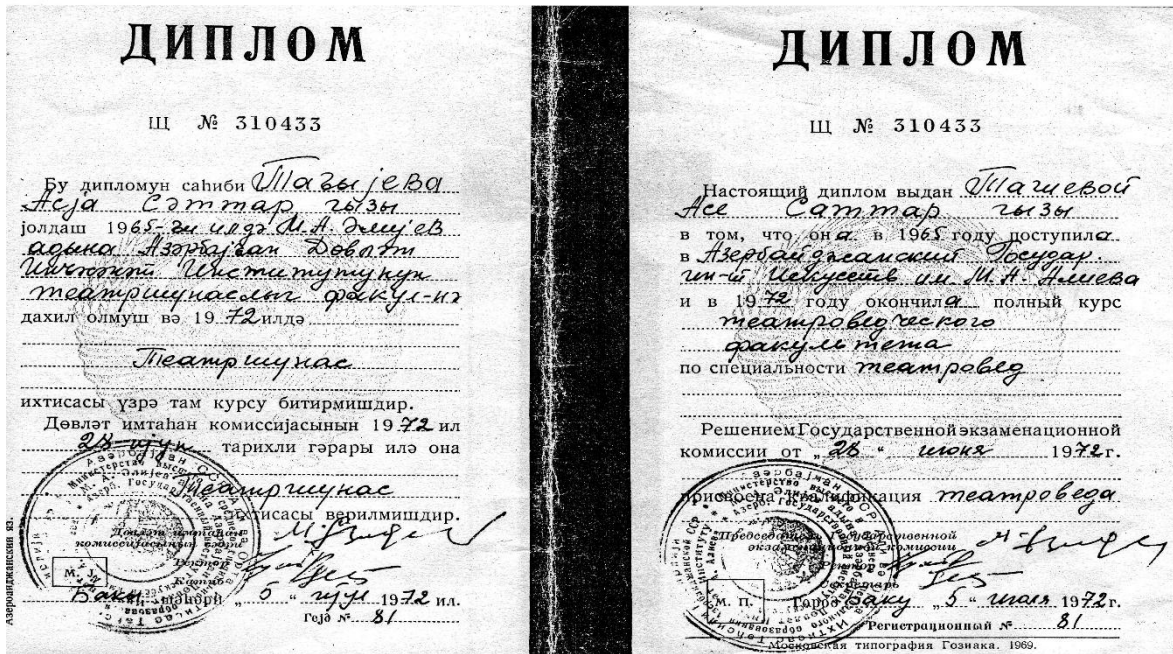 ДИПЛОМ
Щ № 310433
Бу дипломун саһиби Тағыјева
Асја Сәттар гызы
јолдаш 1965-ҹи илдә М.А. Әлијев
адына Азәрбајҹан Дөвләт
Инҹәсәнәт Институтунун
театршунаслыг факүл-нә
дахил олмуш вә 1972 илдә
Театршунас
ихтисасы үзрә там курсу битирмишдир.
Дөвләт имтаһан комиссијасынын 1972 ил
28 ијун тарихли гәрары илә она
Театршунас
ихтисасы верилмишдир.
Дөвләт имтаһан
комиссијасынын сәдри
Ректор
Катиб
М.
Бакы шәһәри „5“ ијул 1972 ил.
Гејд № 81
Азербаиджанский яз.
ДИПЛОМ
Щ № 310433
Настоящий диплом выдан Тагиевой
Асе Саттар гызы
в том, что она в 1965 году поступила
в Азербайджанский Государ.
ин-т Искусств им М.А. Алиева
и в 1972 году окончила полный курс
театроведческого
факультета
по специальности театровед
Решением Государственной экзаменационной
комиссии от „28“ июня 1972 г.
присвоена квалификация театроведа
Председатель Государственной
экзаменационной комиссии
Ректор
Секретарь
М. П. Город Баку „5“ июля 1972 г.
Регистрационный № 81
Московская типография Гознака. 1969.